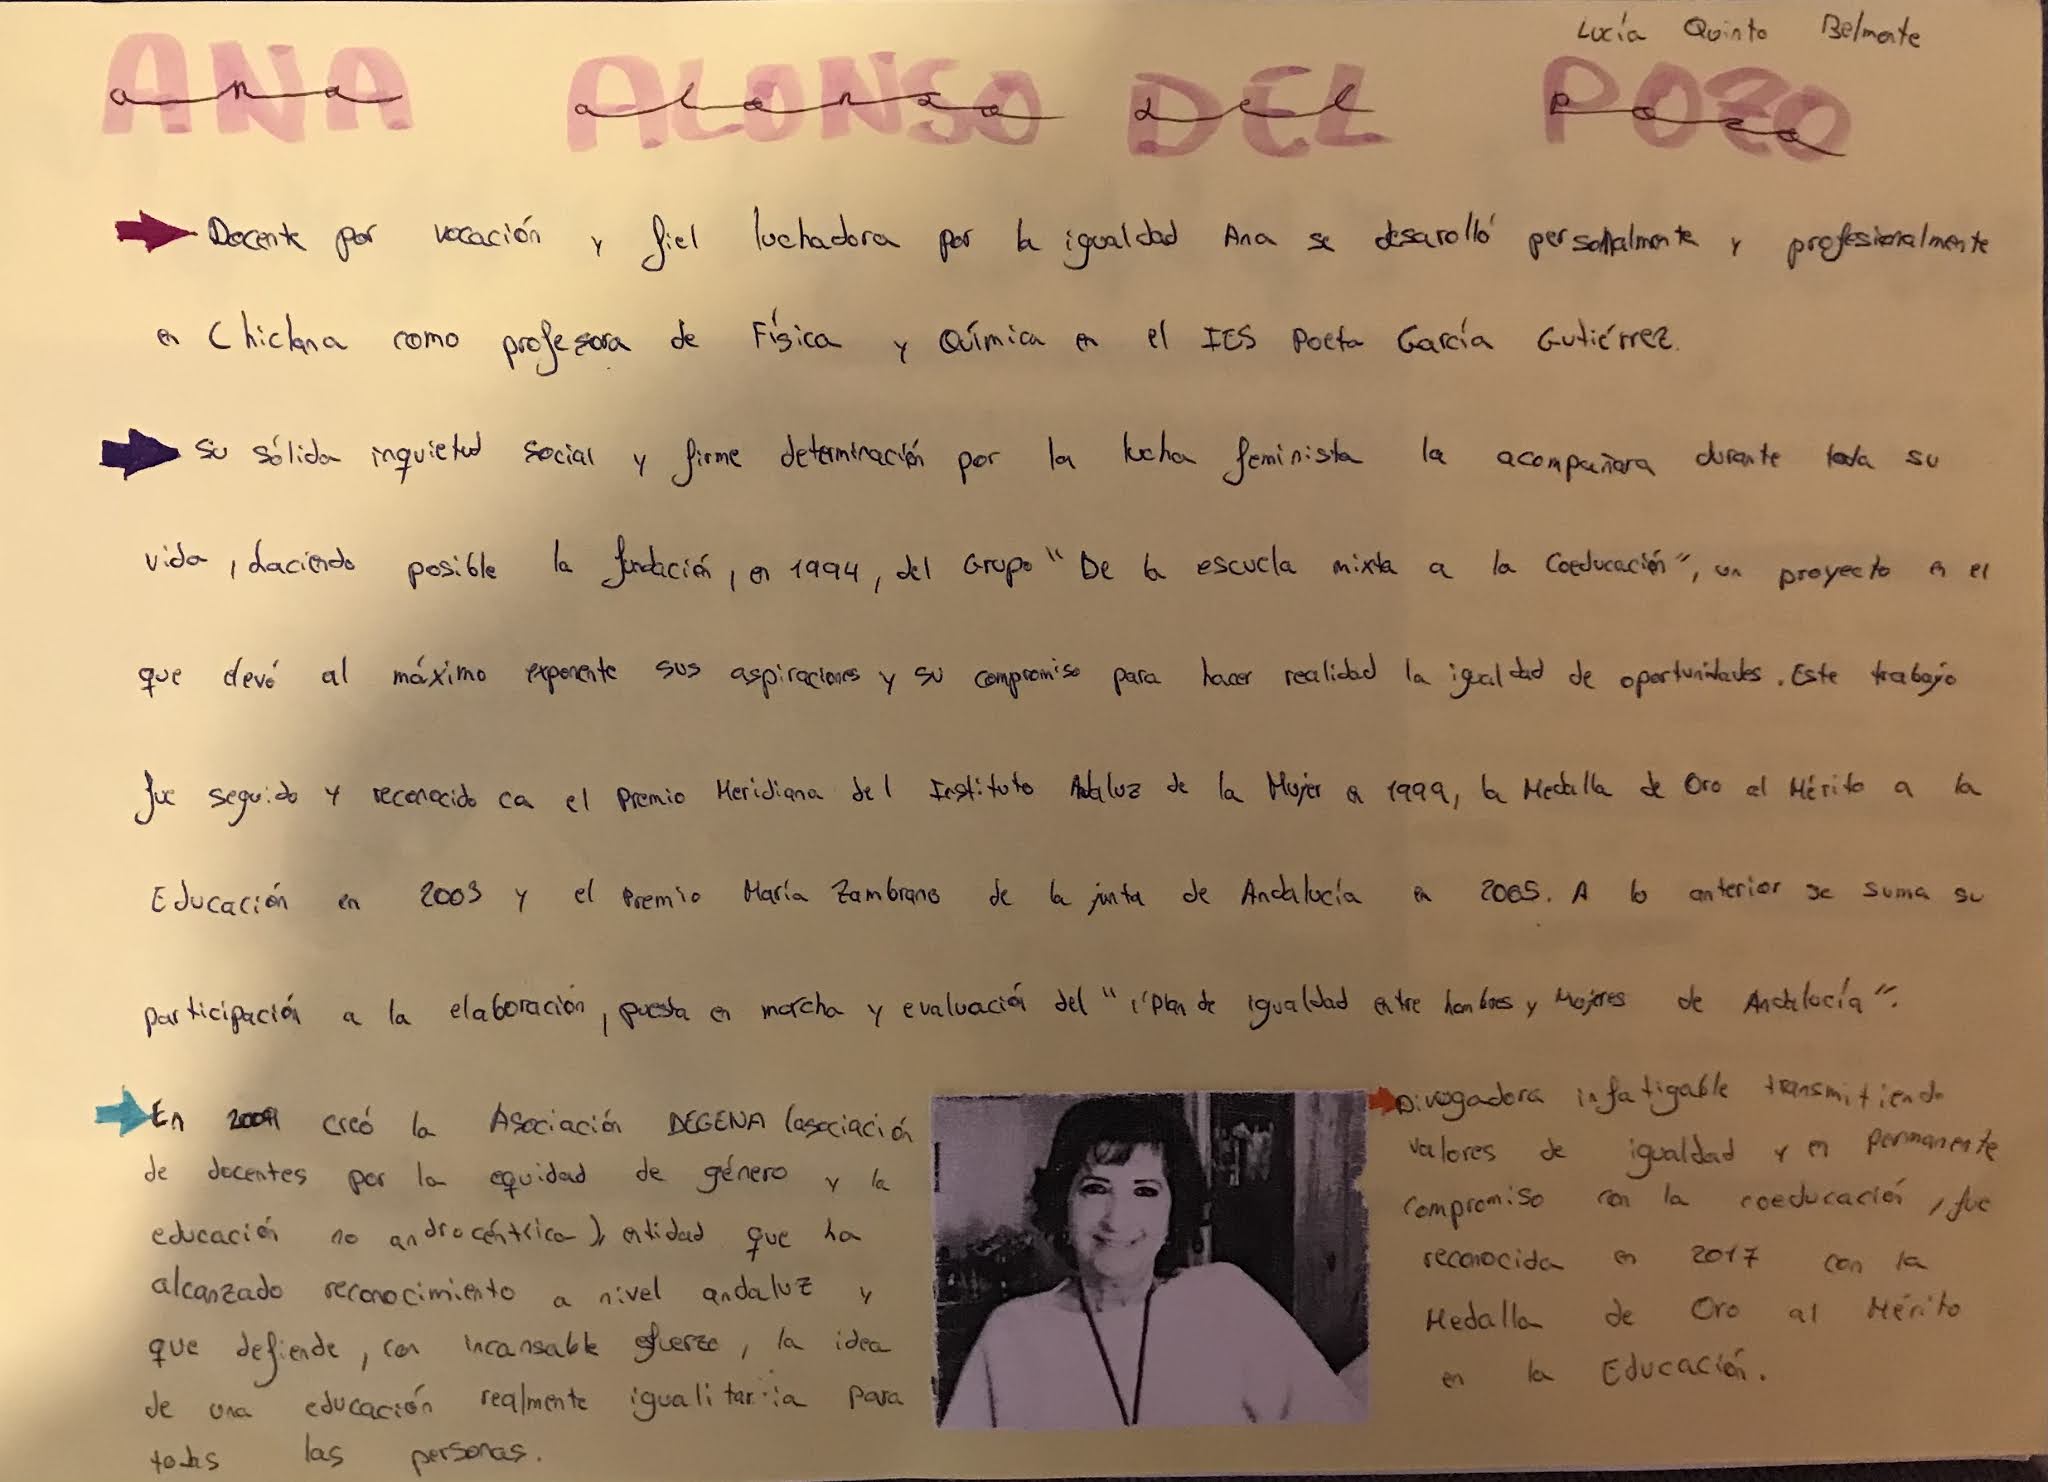 Lucía Quinto Belmonte
ANA ALONSO DEL POZO
ana alonso del pozo
Docente por vocación y fiel luchadora por la igualdad Ana se desarolló personalmente y profesionalmente
en Chiclana como profesora de Física y Química en el IES Poeta García Gutiérrez.
Su sólida inquietud social y firme determinación por la lucha feminista la acompañara durante toda su
vida, haciendo posible la fundación, en 1994, del Grupo "De la escuela mixta a la Coeducación", un proyecto en el
que elevó al máximo exponente sus aspiraciones y su compromiso para hacer realidad la igualdad de oportunidades. Este trabajo
fue seguido y reconocido con el Premio Meridiana del Instituto Andaluz de la Mujer en 1999, la Medalla de Oro al Mérito a la
Educación en 2003 y el Premio María Zambrano de la junta de Andalucía en 2005. A lo anterior se suma su
participación a la elaboración, puesta en marcha y evaluación del "I Plan de igualdad entre hombres y Mujeres de Andalucía".
En creó la Asociación DEGENA (asociación
de docentes por la equidad de género y la
educación no androcéntrica), entidad que ha
alcanzado reconocimiento a nivel andaluz y
que defiende, con incansable esfuerzo, la idea
de una educación realmente igualitaria para
todas las personas.
Divugadora infatigable transmitiendo
valores de igualdad y en permanente
compromiso con la coeducación, fue
reconocida en 2017 con la
Medalla de Oro al Mérito
en la Educación.